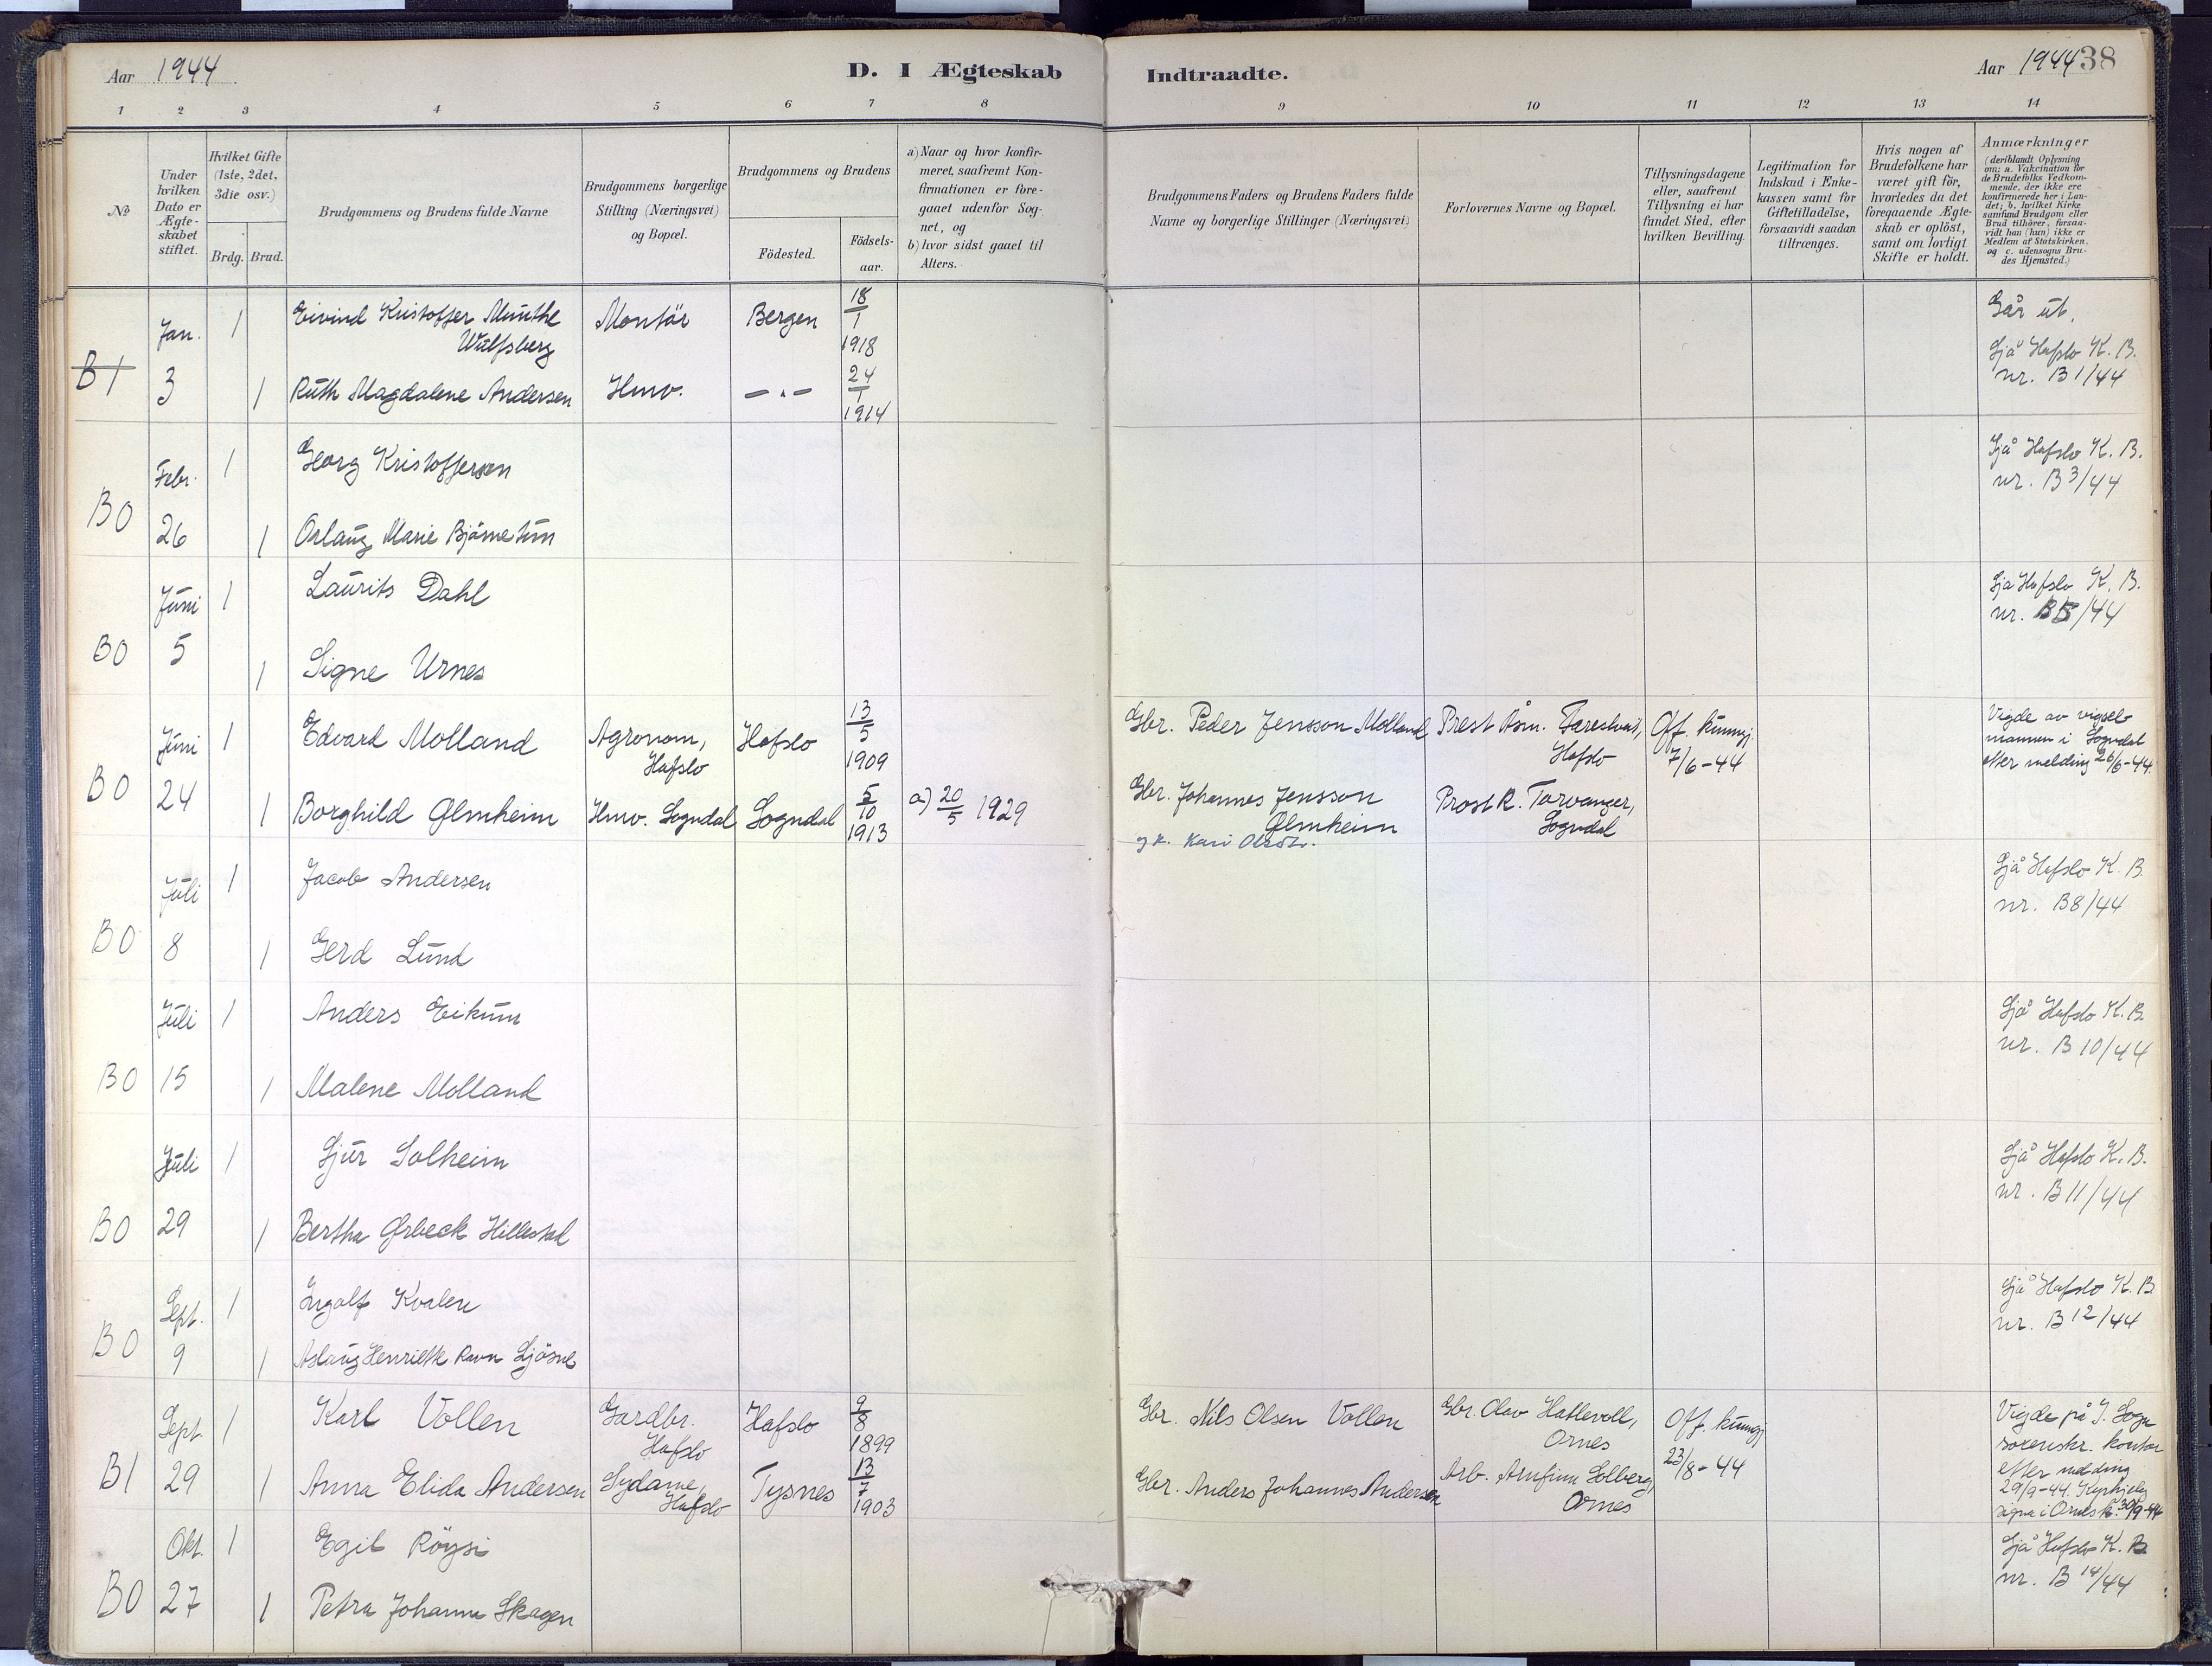 Aar 1944
D. I Ægteskab
Indtraadte.
Aar 1944 38
1 2 3 4 5 6 7 8 9 10 11 12 13 14
No
Under hvilken Dato er Ægteskabet stiftet.
Hvilket Gifte (1ste, 2det, 3die osv.)
Brdg. Brud.
Brudgommens og Brudens fulde Navne
Brudgommens borgerlige Stilling (Næringsvei) og Bopæl.
Brudgommens og Brudens
Födested.
Födsels-aar.
a) Naar og hvor konfirmeret, saafremt Konfirmationen er foregaaet udenfor Sognet, og
b) hvor sidst gaaet til Alters.
Brudgommens Faders og Brudens Faders fulde Navne og borgerlige Stillinger (Næringsvei)
Forlovernes Navne og Bopæl.
Tillysningsdagene eller, saafremt Tillysning ei har fundet Sted, efter hvilken Bevilling.
Legitimation for Indskud i Enkekassen samt for Giftetilladelse, forsaavidt saadan tiltrænges.
Hvis nogen af Brudefolkene har været gift för, hvorledes da det foregaaende Ægteskab er oplöst, samt om lovligt Skifte er holdt.
Anmærkninger
(deriblandt Oplysning om: a. Vakcination for de Brudefolks Vedkommende, der ikke ere konfirmerede her i Landet; b. hvilket Kirkesamfund Brudgom eller Brud tilhörer, forsaavidt han (hun) ikke er Medlem af Statskirken, og c. udensogns Brudes Hjemsted.)
B1 Jan. 3
1 Eivind Kristoffer Munthe Wulfsberg Montör Bergen 18/1 1918
1 Ruth Magdalene Andersen Hmv. — " — 24/1 1914
Går ut.
Sjå Hafslo K. B.
nr. B 1/44
B0 Febr. 26
1 Georg Kristoffersen
1 Oslaug Marie Bjørnetun
Sjå Hafslo K. B.
nr. B 3/44
B0 Juni 5
1 Laurits Dahl
1 Signe Urnes
Sjå Hafslo K. B.
nr. /44
B0 Juni 24
1 Edvard Molland Agronom, Hafslo Hafslo 13/5 1909
Gbr. Peder Jensson Molland Prest Åsm. Hafslo Off. kunngj. 7/6-44
1 Borghild Ølmheim Hmv. Sogndal Sogndal 5/10 1913 a) 20/5 1929
Gbr. Johannes Jensson Ølmheim
og k. Kari Olsdt.
Prost R. Tarvanger, Sogndal
Vigde av vigsels-
mannen i Sogndal
etter melding 26/6-44.
B0 Juli 8
1 Jacob Andersen
1 Gerd Lund
Sjå Hafslo K. B.
nr. B8/44
B0 Juli 15
1 Anders Eikum
1 Malene Molland
Sjå Hafslo K. B.
nr. B 10/44
B0 Juli 29
1 Sjur Solheim
1 Bertha Ørbeck Hillestad
Sjå Hafslo K. B.
nr. B 11/44
B0 Sept. 9
1 Ingolf Kvalen
1 Aslaug Henriette Ravn Sjösne
Sjå Hafslo K. B.
nr. B 12/44
B1 Sept 29
1 Karl Vollen Gardbr. Hafslo Hafslo 9/8 1899
Gbr. Nils Olsen Vollen Gbr. Olav Hattevoll, Ornes Off. kunngj 23/8-44
1 Anna Elida Andersen Sydame, Hafslo Tysnes 13/7 1903
Gbr. Anders Johannes Andersen Arb. Arnfinn Solberg, Ornes
Vigde på I. Sogn
sorenskr. kontor
etter melding
29/9-44. Kyrkjeleg
signa i Ornes k. 30/9-44
B0 Okt. 27
1 Egil Röysi
1 Petra Johanne Skagen
Sjå Hafslo K. B.
nr. B 14/44